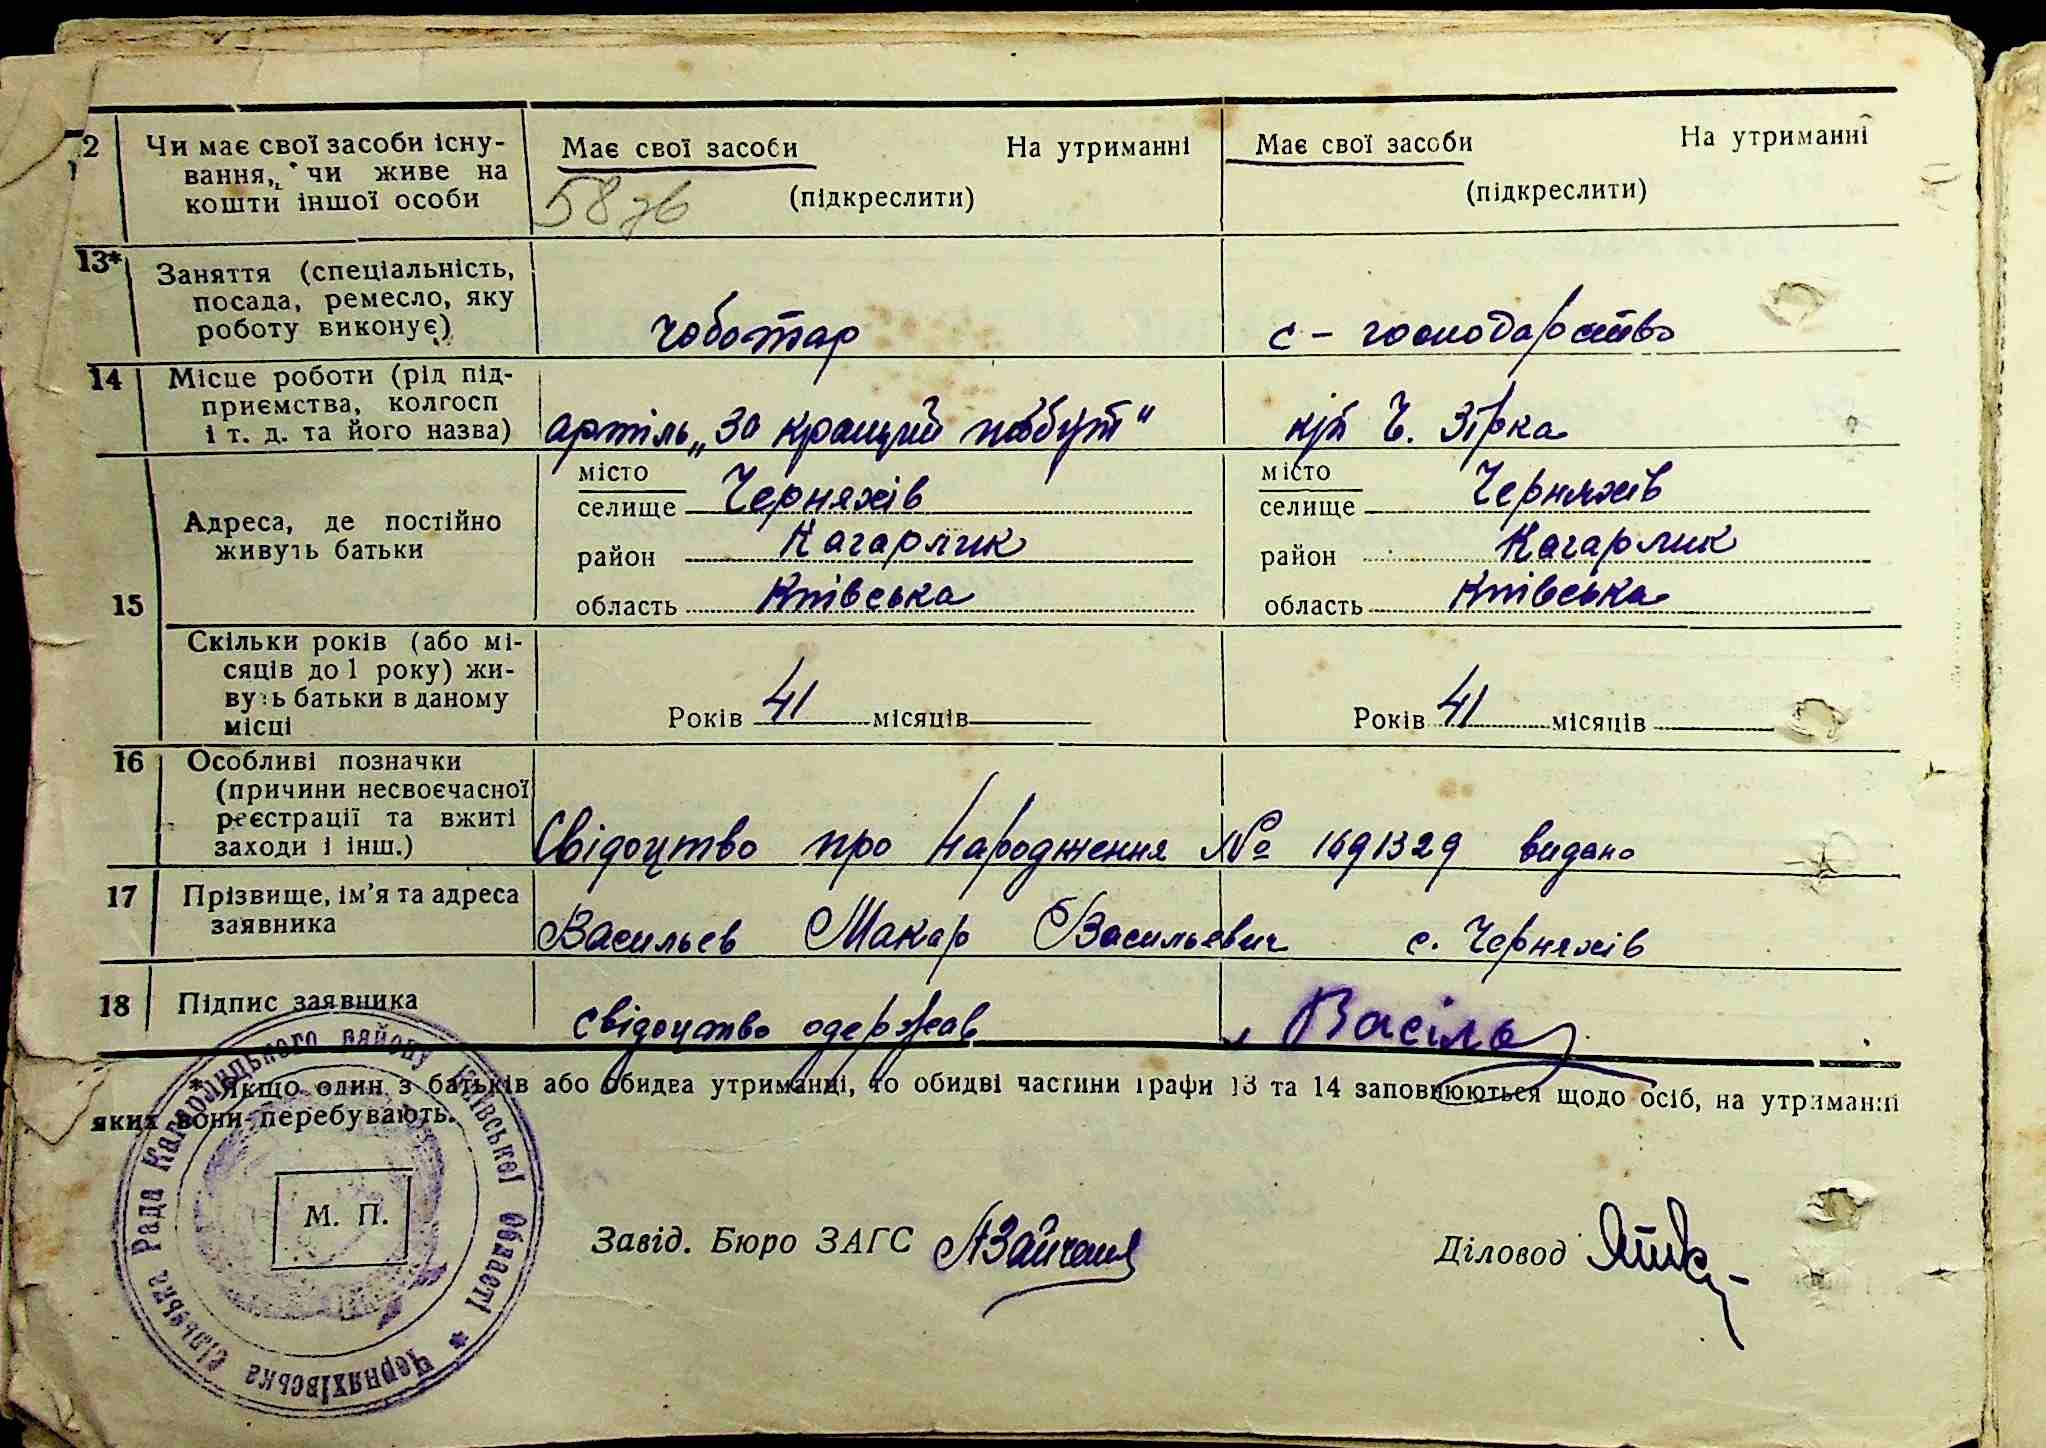 2 Чи має свої засоби існу- Має свої засоби На утриманні Має свої засоби На утриманні
вання, чи живе на
кошти іншої особи 58 зв (підкреслити) (підкреслити)
13* Заняття (спеціальність,
посада, ремесло, яку
роботу виконує) чоботар с-господарство
14 Місце роботи (рід під-
приємства, колгосп
і т. д. та його назва) артіль „За кращий побут" к/г Ч. Зірка
місто місто
селище Черняхів селище Черняхів
Адреса, де постійно
живуть батьки район Кагарлик район Кагарлик
15 область Київська область Київська
Скільки років (або мі-
сяців до 1 року) жи-
вуть батьки в даному
місці Років 41 місяців Років 41 місяців
16 Особливі позначки
(причини несвоєчасної
реєстрації та вжиті
заходи і інш.) Свідоцтво про народження № 1691329 видано
17 Прізвище, ім'я та адреса
заявника Васильев Макар Васильевич с. Черняхів
18 Підпис заявника свідоцтво одержав Васіль
* Якщо один з батьків або обидва утриманці, то обидві частини графи 13 та 14 заповнюються щодо осіб, на утриманні
яких вони перебувають.
Черняхівська Сільська Рада Кагарлицького району Київської Області *
М. П.
Завід. Бюро ЗАГС Діловод